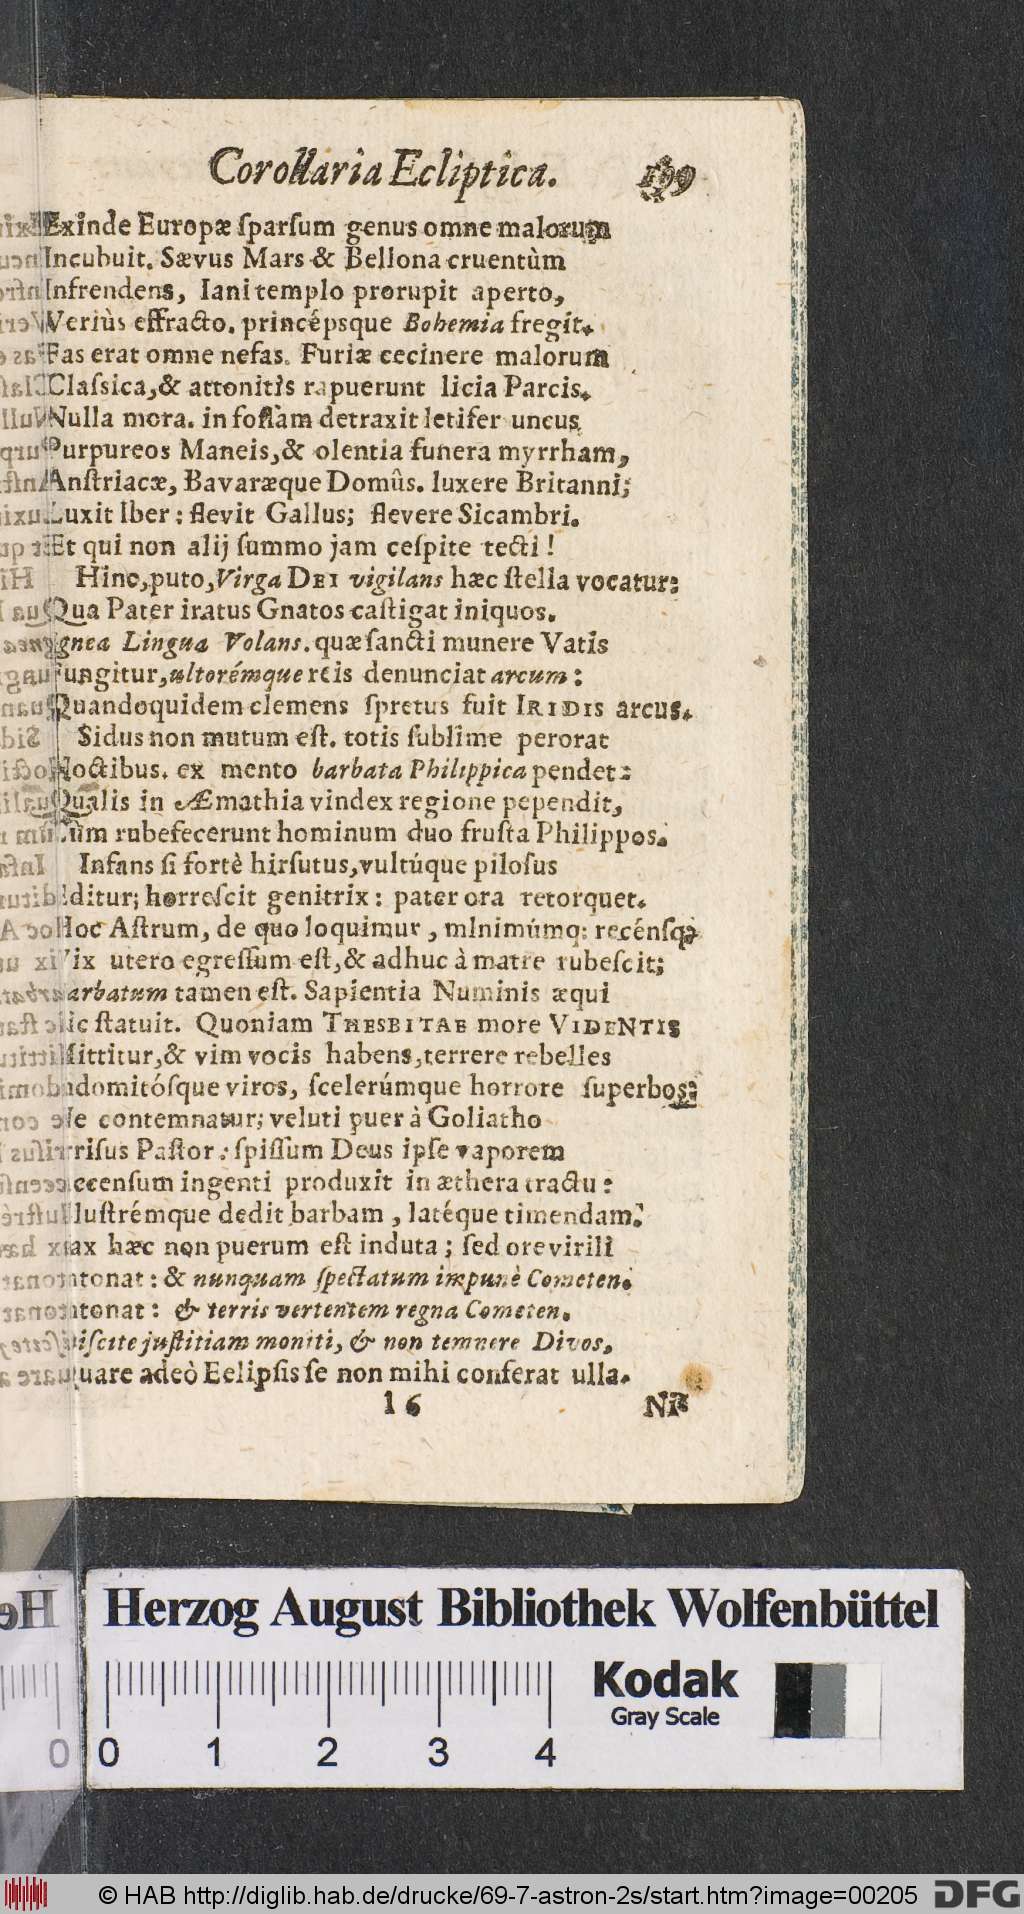 Corollaria Ecliptica. 199
Exinde Europæ ſparſum genus omne malorum
Incubuit. Sævus Mars & Bellona cruentùm
Infrendens, Iani templo prorupit aperto,
Veriùs effracto. princépsque Bohemia fregit.
Fas erat omne nefas. Furiæ cecinere malorum
Claſsica, & attonitis rapuerunt licia Parcis.
Nulla mora. in foſſam detraxit letifer uncus
Purpureos Maneis, & olentia funera myrrham,
Anſtriacæ, Bavaræque Domûs. luxere Britanni;
Luxit Iber: flevit Gallus; flevere Sicambri.
Et qui non alij ſummo jam ceſpite tecti!
Hinc, puto, Virga DEI vigilans hæc ſtella vocatur:
Qua Pater iratus Gnatos caſtigat iniquos.
gnea Lingua Volans. quæ ſancti munere Vatis
Fungitur, ultorémque reis denunciat arcum:
Quandoquidem clemens ſpretus fuit IRIDIS arcus.
Sidus non mutum eſt. totis ſublime perorat
Noctibus. ex mento barbata Philippica pendet:
Qualis in Æmathia vindex regione pependit,
Cùm rubefecerunt hominum duo fruſta Philippos.
Infans ſi fortè hirſutus, vultúque piloſus
Editur; horreſcit genitrix: pater ora retorquet.
Hoc Aſtrum, de quo loquimur, mInimúmq; recénſq;
Vix utero egreſſum eſt, & adhuc à matre rubeſcit;
arbatum tamen eſt. Sapientia Numinis æqui
ic ſtatuit. Quoniam THESBITAE more VIDENTIS
Mittitur, & vim vocis habens, terrere rebelles
ndomitóſque viros, ſcelerúmque horrore ſuperbos:
Ne contemnatur; veluti puer à Goliatho
rriſus Paſtor: ſpiſſum Deus ipſe vaporem
ccenſum ingenti produxit in æthera tractu:
lluſtrémque dedit barbam, latéque timendam.
ax hæc non puerum eſt induta; ſed ore virili
ntonat: & nunquam ſpectatum impunè Cometen.
ntonat: & terris vertentem regna Cometen.
iſcite juſtitiam moniti, & non temnere Divos.
uare adeò Eclipſis ſe non mihi conferat ulla.
I 6 Ni
Herzog August Bibliothek Wolfenbüttel
Kodak
Gray Scale
0 0 1 2 3 4
© HAB http://diglib.hab.de/drucke/69-7-astron-2s/start.htm?image=00205 DFG